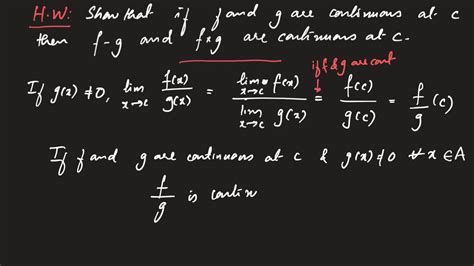 H.W: Show that if f and g are continuous at c
then f-g and f×g are continuous at c.
if f & g are cont
If g(x) ≠ 0, lim x→c f(x)/g(x) = lim x→c f(x) / lim x→c g(x) = f(c)/g(c) = f/g (c)
If f and g are continuous at c & g(x) ≠ 0 ∀ x ∈ A
f/g is contin